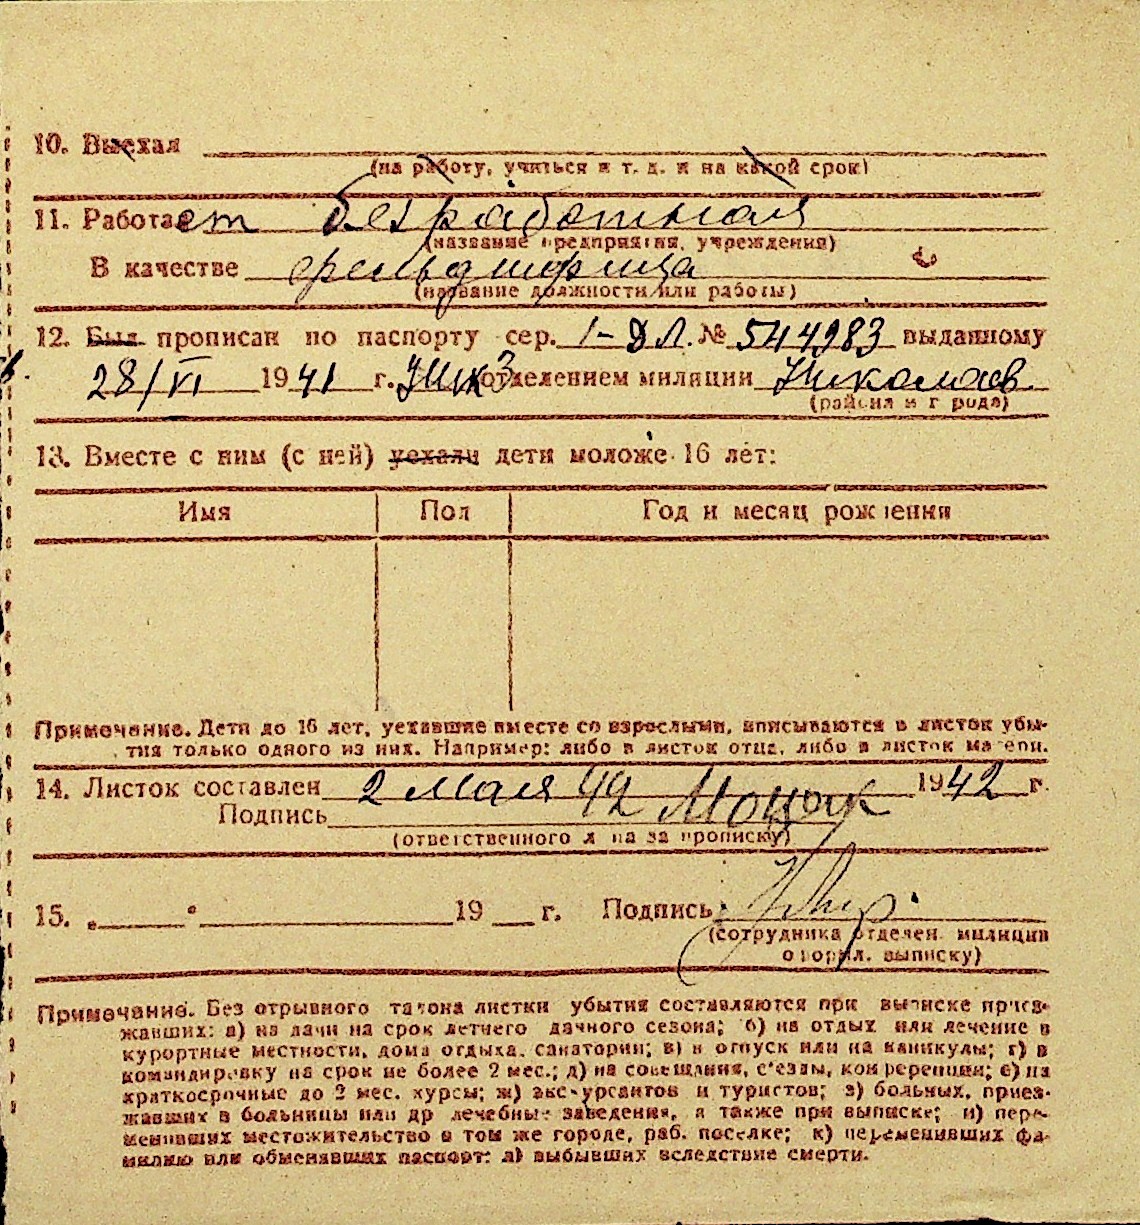 10. Выехал
(на работу, учиться и т. д. и на какой срок)
11. Работает безработная
(название предприятия, учреждения)
В качестве фельдшерица
(название должности или работы)
12. Был прописан по паспорту сер. 1-ДЛ. № 544983 выданному
28/VI 1941 г. 3 отделением милиции Николаев
(района и города)
13. Вместе с ним (с ней) уехали дети моложе 16 лет:
Имя Пол Год и месяц рождения
Примечание. Дети до 16 лет, уехавшие вместе со взрослыми, вписываются в листок убы-
тия только одного из них. Например: либо в листок отца, либо в листок матери.
14. Листок составлен 2 мая 42 1942 г.
Подпись
(ответственного лица за прописку)
15. „ " 19 г. Подпись
(сотрудника отделен. милиции
оформл. выписку)
Примечание. Без отрывного талона листки убытия составляются при выписке приез-
жавших: а) на дачи на срок летнего дачного сезона; б) на отдых или лечение в
курортные местности, дома отдыха, санатории; в) в отпуск или на каникулы; г) в
командировку на срок не более 2 мес.; д) на совещания, с'езды, конференции; е) на
краткосрочные до 2 мес. курсы; ж) экскурсантов и туристов; з) больных, приез-
жавших в больницы или др лечебные заведения, а также при выписке; и) пере-
менивших местожительство в том же городе, раб. поселке; к) переменивших фа-
милию или обменявших паспорт; л) выбывших вследствие смерти.